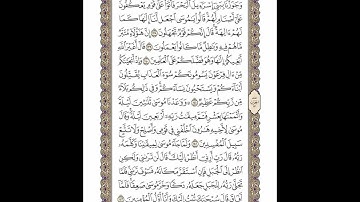 وَجَٰوَزْنَا بِبَنِىٓ إِسْرَٰٓءِيلَ ٱلْبَحْرَ فَأَتَوْا۟ عَلَىٰ قَوْمٍ يَعْكُفُونَ
عَلَىٰٓ أَصْنَامٍ لَّهُمْ ۚ قَالُوا۟ يَٰمُوسَى ٱجْعَل لَّنَآ إِلَٰهًا كَمَا
لَهُمْ ءَالِهَةٌ ۚ قَالَ إِنَّكُمْ قَوْمٌ تَجْهَلُونَ ۝ إِنَّ هَٰٓؤُلَآءِ مُتَبَّرٌ
مَّا هُمْ فِيهِ وَبَٰطِلٌ مَّا كَانُوا۟ يَعْمَلُونَ ۝ قَالَ أَغَيْرَ ٱللَّهِ
أَبْغِيكُمْ إِلَٰهًا وَهُوَ فَضَّلَكُمْ عَلَى ٱلْعَٰلَمِينَ ۝ وَإِذْ أَنجَيْنَٰكُم
مِّنْ ءَالِ فِرْعَوْنَ يَسُومُونَكُمْ سُوٓءَ ٱلْعَذَابِ يُقَتِّلُونَ
أَبْنَآءَكُمْ وَيَسْتَحْيُونَ نِسَآءَكُمْ ۚ وَفِى ذَٰلِكُم بَلَآءٌ
مِّن رَّبِّكُمْ عَظِيمٌ ۝ وَوَٰعَدْنَا مُوسَىٰ ثَلَٰثِينَ لَيْلَةً
وَأَتْمَمْنَٰهَا بِعَشْرٍ فَتَمَّ مِيقَٰتُ رَبِّهِۦٓ أَرْبَعِينَ لَيْلَةً ۚ وَقَالَ
مُوسَىٰ لِأَخِيهِ هَٰرُونَ ٱخْلُفْنِى فِى قَوْمِى وَأَصْلِحْ وَلَا تَتَّبِعْ
سَبِيلَ ٱلْمُفْسِدِينَ ۝ وَلَمَّا جَآءَ مُوسَىٰ لِمِيقَٰتِنَا وَكَلَّمَهُۥ
رَبُّهُۥ قَالَ رَبِّ أَرِنِىٓ أَنظُرْ إِلَيْكَ ۚ قَالَ لَن تَرَىٰنِى وَلَٰكِنِ
ٱنظُرْ إِلَى ٱلْجَبَلِ فَإِنِ ٱسْتَقَرَّ مَكَانَهُۥ فَسَوْفَ تَرَىٰنِى ۚ فَلَمَّا
تَجَلَّىٰ رَبُّهُۥ لِلْجَبَلِ جَعَلَهُۥ دَكًّا وَخَرَّ مُوسَىٰ صَعِقًا ۚ فَلَمَّآ
أَفَاقَ قَالَ سُبْحَٰنَكَ تُبْتُ إِلَيْكَ وَأَنَا۠ أَوَّلُ ٱلْمُؤْمِنِينَ ۝